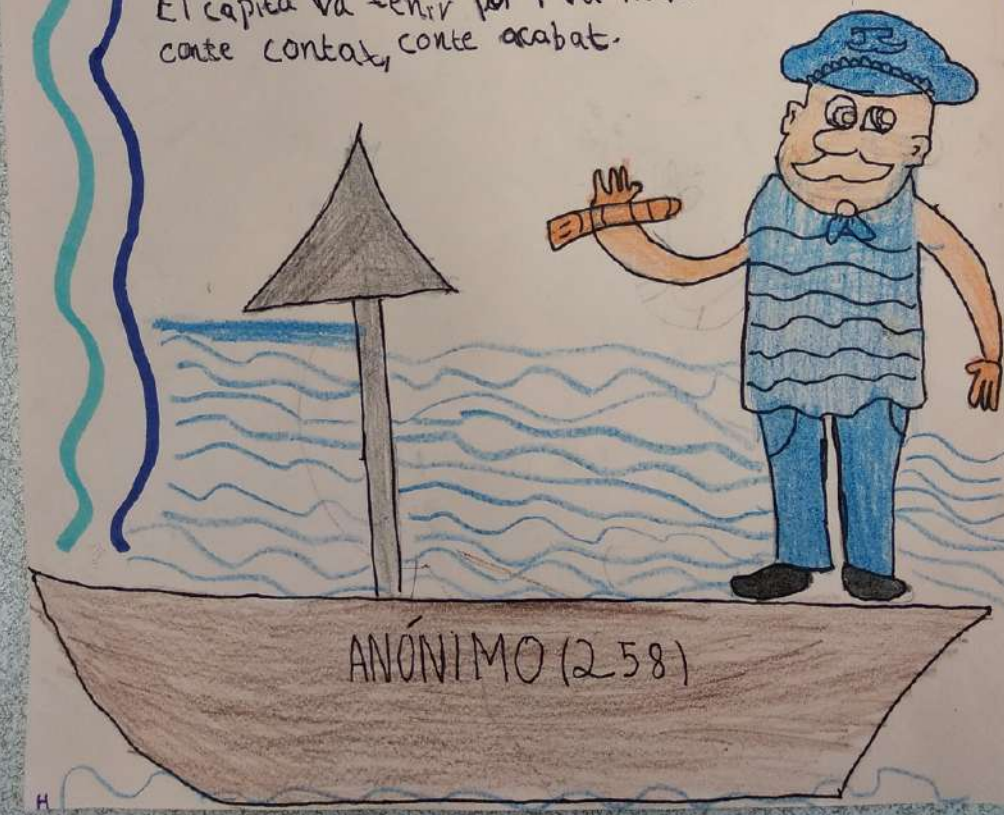 El capità va tenir por i va
conte contat, conte acabat.
ANÓNIMO (258)
H